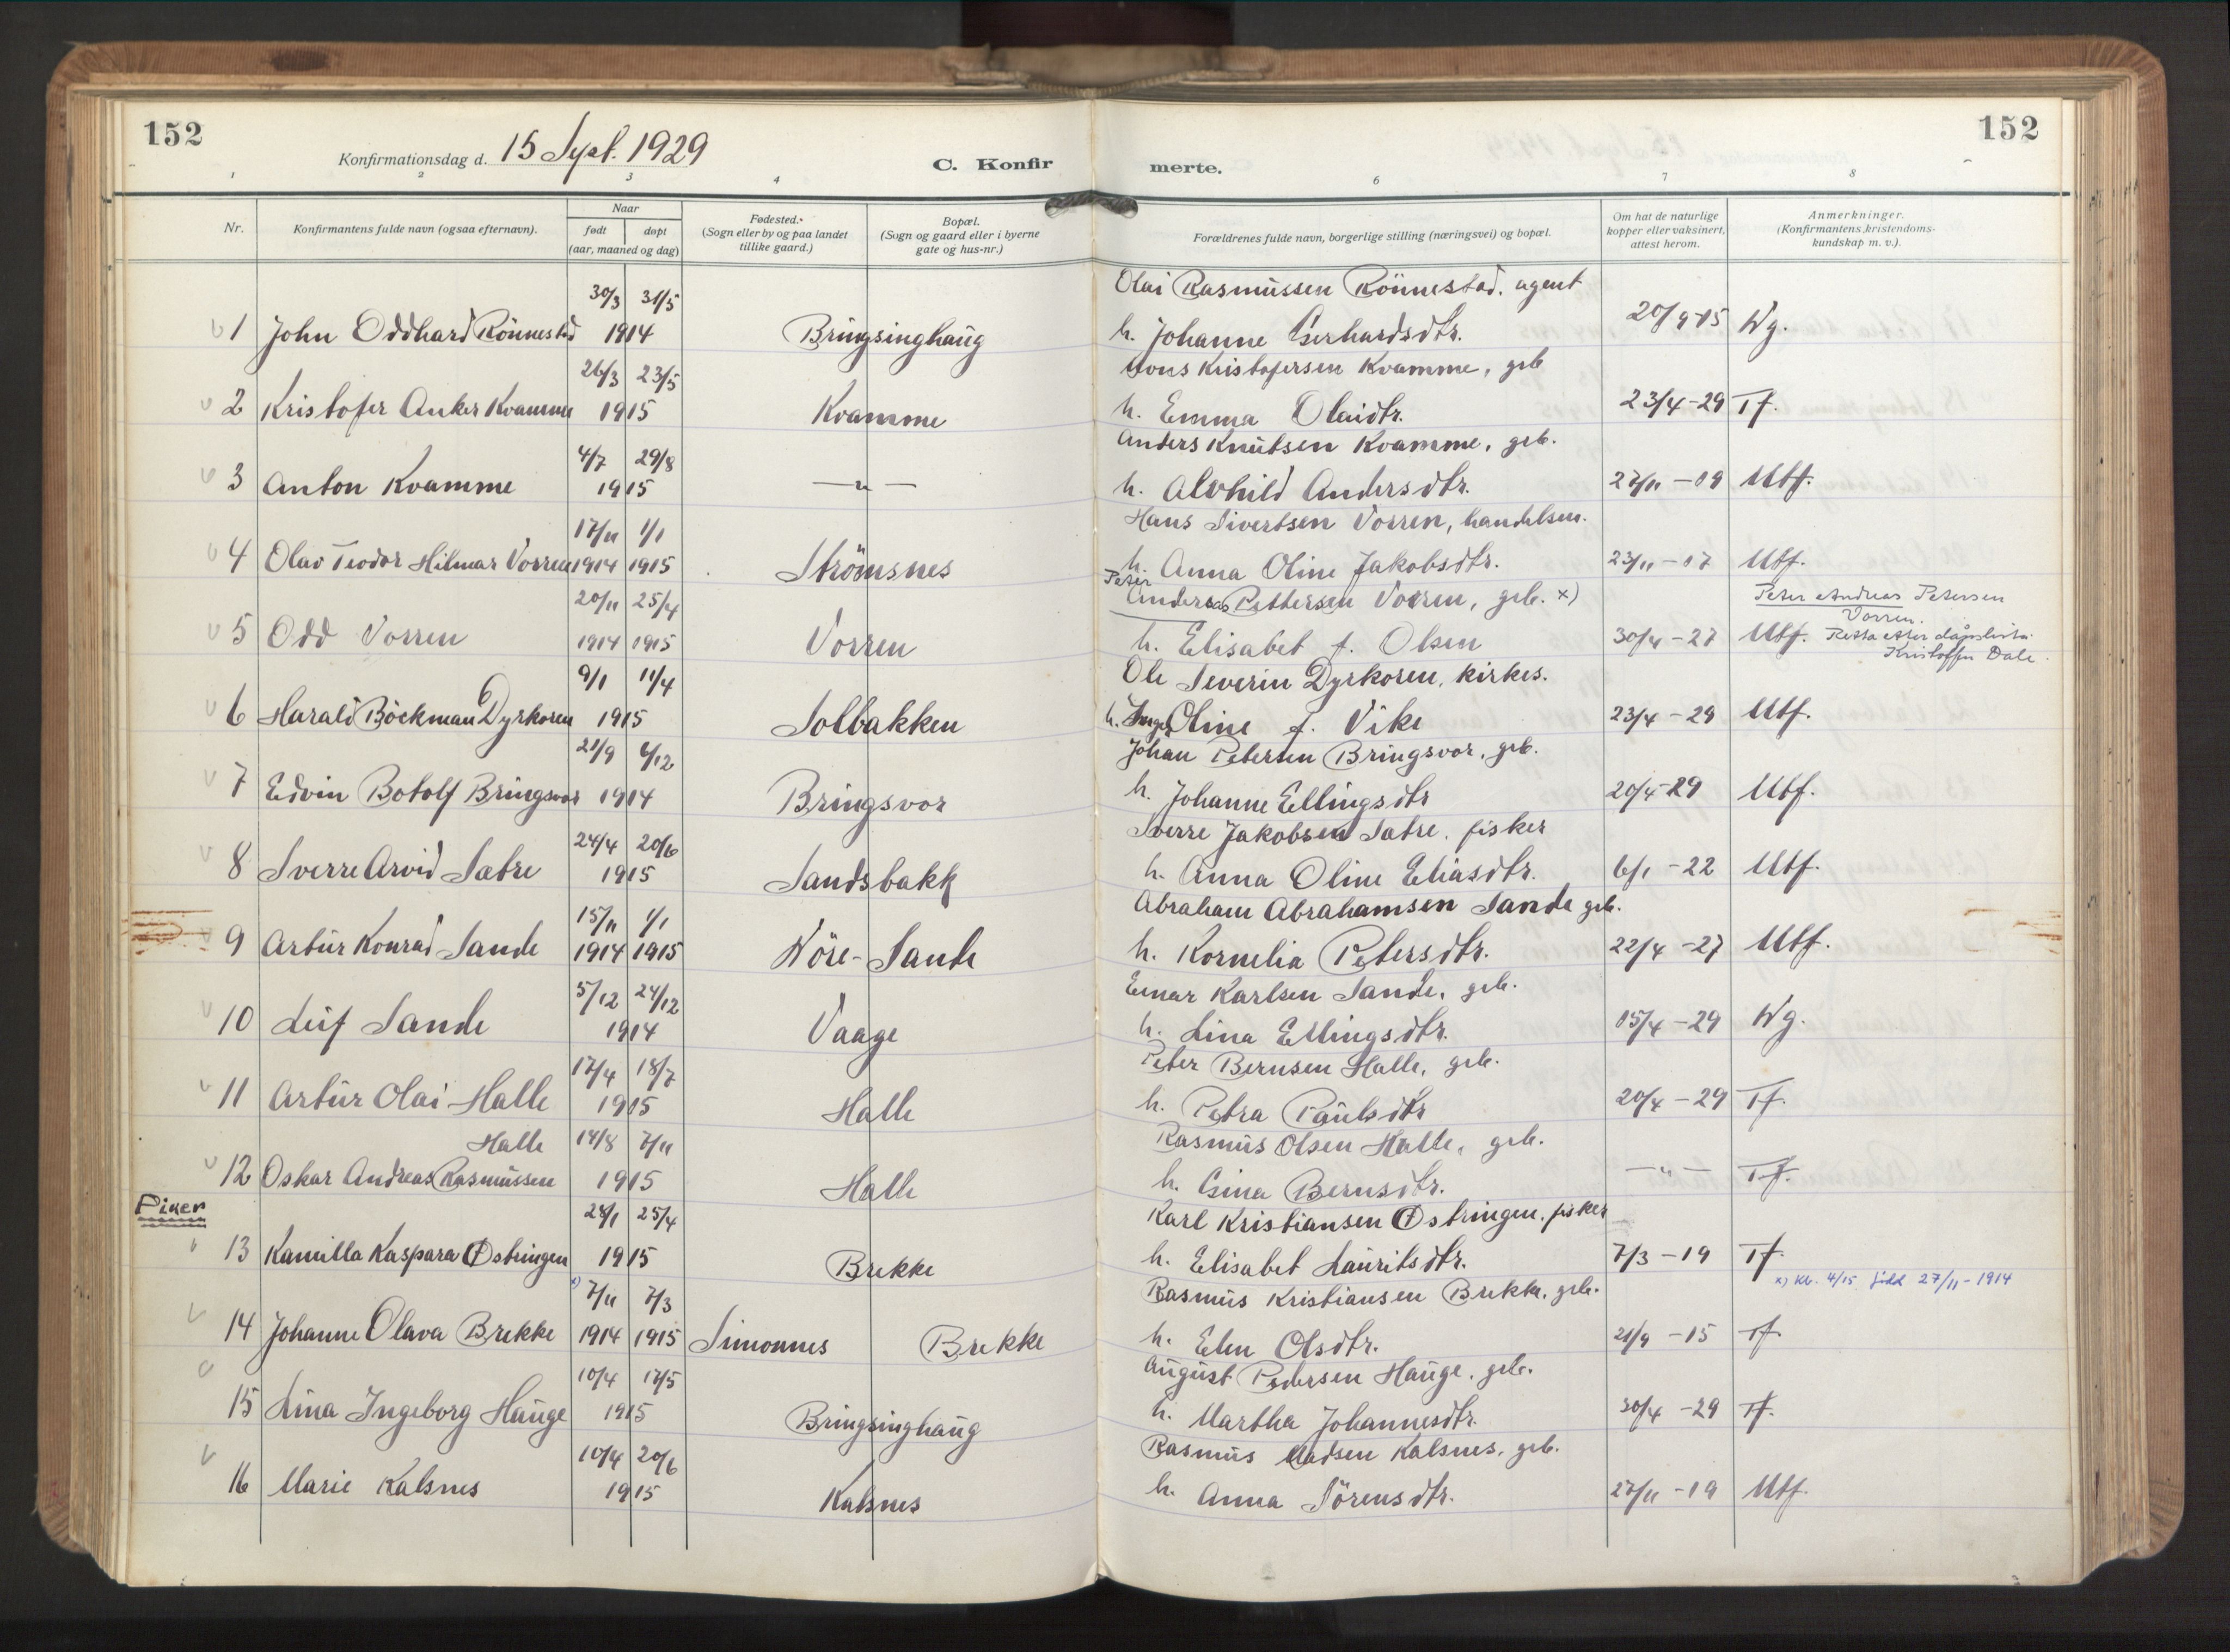 152
152
Konfirmationsdag d. 15 Sept. 1929
C. Konfirmerte.
1 2 3 4 6 7 8
Nr.
Konfirmantens fulde navn (ogsaa efternavn).
Naar
født døpt
(aar, maaned og dag)
Fødested.
(Sogn eller by og paa landet
tillike gaard.)
Bopæl.
(Sogn og gaard eller i byerne
gate og hus-nr.)
Forældrenes fulde navn, borgerlige stilling (næringsvei) og bopæl.
Om hat de naturlige
kopper eller vaksinert,
attest herom.
Anmerkninger.
(Konfirmantens kristendoms-
kundskap m. v.).
30/3 31/5 Olai Rasmussen Rönnestad. agent
1 John Oddhard Rönnestad 1914 Bringsinghaug h. Johanne Gerhardsdtr. 20/9-15 Mg.
26/3 23/5 Mons Kristofersen Kvamme, grb
2 Kristofer Anker Kvamme 1915 Kvamme h. Emma Olaidtr. 23/4-29 Tf.
4/7 29/8 Anders Knutsen Kvamme, grb.
3 Anton Kvamme 1915 —"— h. Alvhild Andersdtr. 27/11-19 Mtf.
17/11 1/1 Hans Sivertsen Vorren, handelsm.
4 Olav Teodor Hilmar Vorren 1914 1915 Strömsnes h. Anna Oline Jakobsdtr. 23/11-17 Mtf.
20/11 25/4 Peter Andreas Pettersen Vorren, grb. x) Peter Andreas Petersen
Vorren.
5 Odd Vorren 1914 1915 Vorren h. Elisabet f. Olsen 30/4-27 Mtf. Retta etter dåpslista.
Kristoffer Dale.
9/1 11/4 Ole Severin Dyrkoren, kirkes.
6 Harald Böckman Dyrkoren 1915 Solbakken h. Inga Oline f. Vike 23/4-29 Mtf.
21/9 6/12 Johan Petersen Bringsvor, grb.
7 Edvin Botolf Bringsvor 1914 Bringsvor h. Johanne Ellingsdtr 20/4-29 Mtf.
24/4 20/6 Sverre Jakobsen Sætre. fisker
8 Sverre Arvid Sætre 1915 Sandsbakk h. Anna Oline Eliasdtr. 6/1-22 Mtf.
15/11 1/1 Abraham Abrahamsen Sande grb.
9 Artur Konrad Sande 1914 1915 Nöre-Sande h. Kornelia Petersdtr. 22/4-27 Mtf.
5/12 24/12 Einar Karlsen Sande, grb.
10 Leif Sande 1914 Vaage h. Lina Ellingsdtr. 15/4-29 Mg.
17/4 18/7 Peter Bernsen Halle, grb.
11 Artur Olai Halle 1915 Halle h. Petra Paulsdtr 20/4-29 Tf.
Halle 14/8 7/11 Rasmus Olsen Halle, grb.
12 Oskar Andreas Rasmussen 1915 Halle h. Gina Bernsdtr. —"— Tf.
Piker
28/1 25/4 Karl Kristiansen Østringen, fisker
13 Kamilla Kaspara Østringen 1915 Brekke h. Elisabet Lauritsdtr. 7/3-19 Tf.
x) 7/11 7/3 Rasmus Kristiansen Brekke, grb. x) kl. 4/15 född 27/11-1914
14 Johanne Olava Brekke 1914 1915 Simonnes Brekke h. Elen Olsdtr. 21/9-15 Tf.
10/4 17/5 August Pedersen Hauge, grb.
15 Lina Ingeborg Hauge 1915 Bringsinghaug h. Martha Johannesdtr. 30/4-29 Tf.
10/4 20/6 Rasmus Madsen Kalsnes, grb.
16 Marie Kalsnes 1915 Kalsnes h. Anna Sörensdtr. 27/11-19 Mtf.